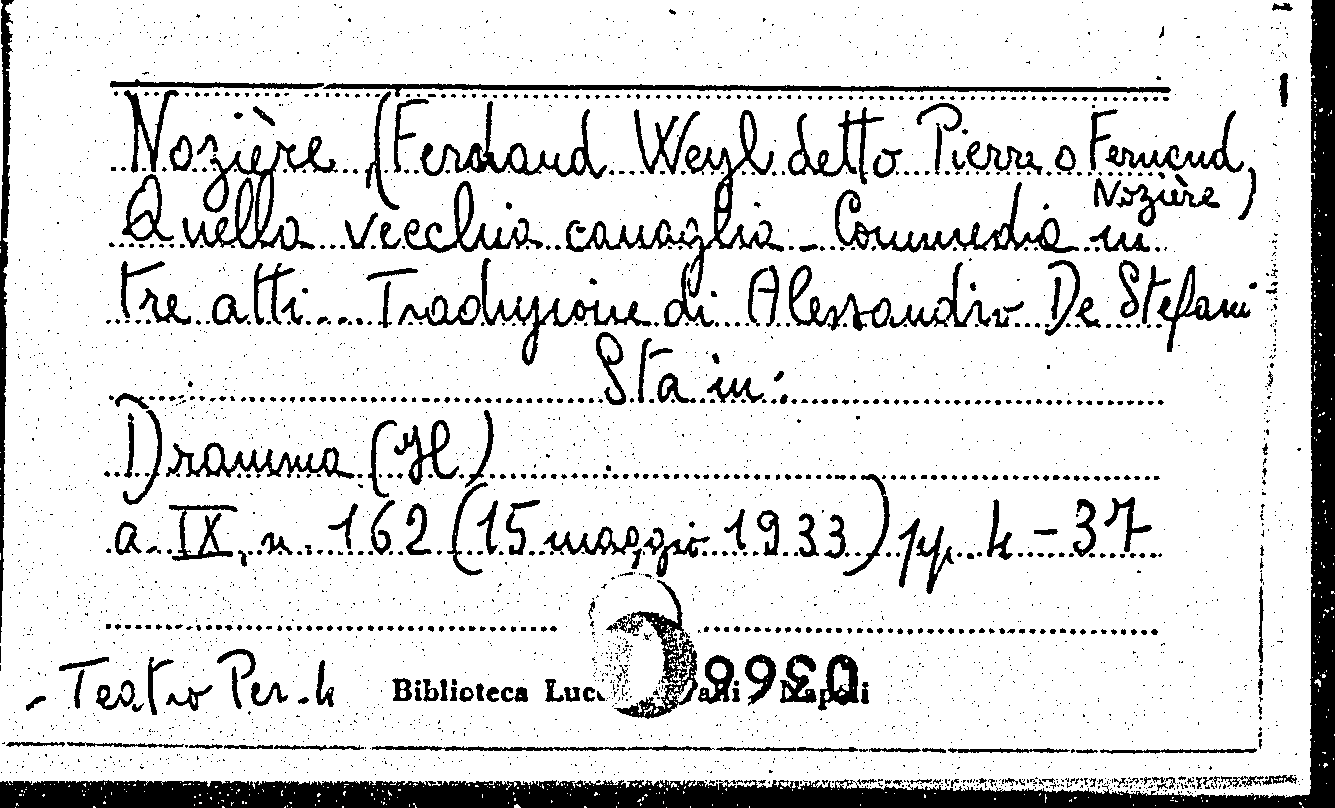 Nozière (Fernand Weyl detto Pierre o Fernand
Nozière)
Quella vecchia canaglia – Commedia in
tre atti... Traduzione di Alessandro De Stefani
Sta in:
Dramma (Il)
a. IX, n. 162 (15 maggio 1933) pp. 4 – 37
- Teatro Per. 4
Biblioteca Napoli